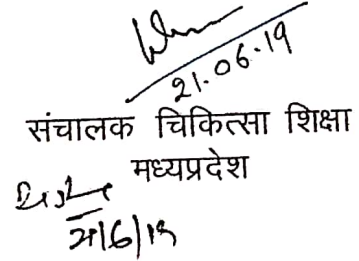 21.06.19
संचालक चिकित्सा शिक्षा
मध्यप्रदेश
21/6/19